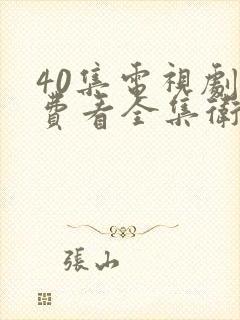 40集電視劇
費看全集衛
張山